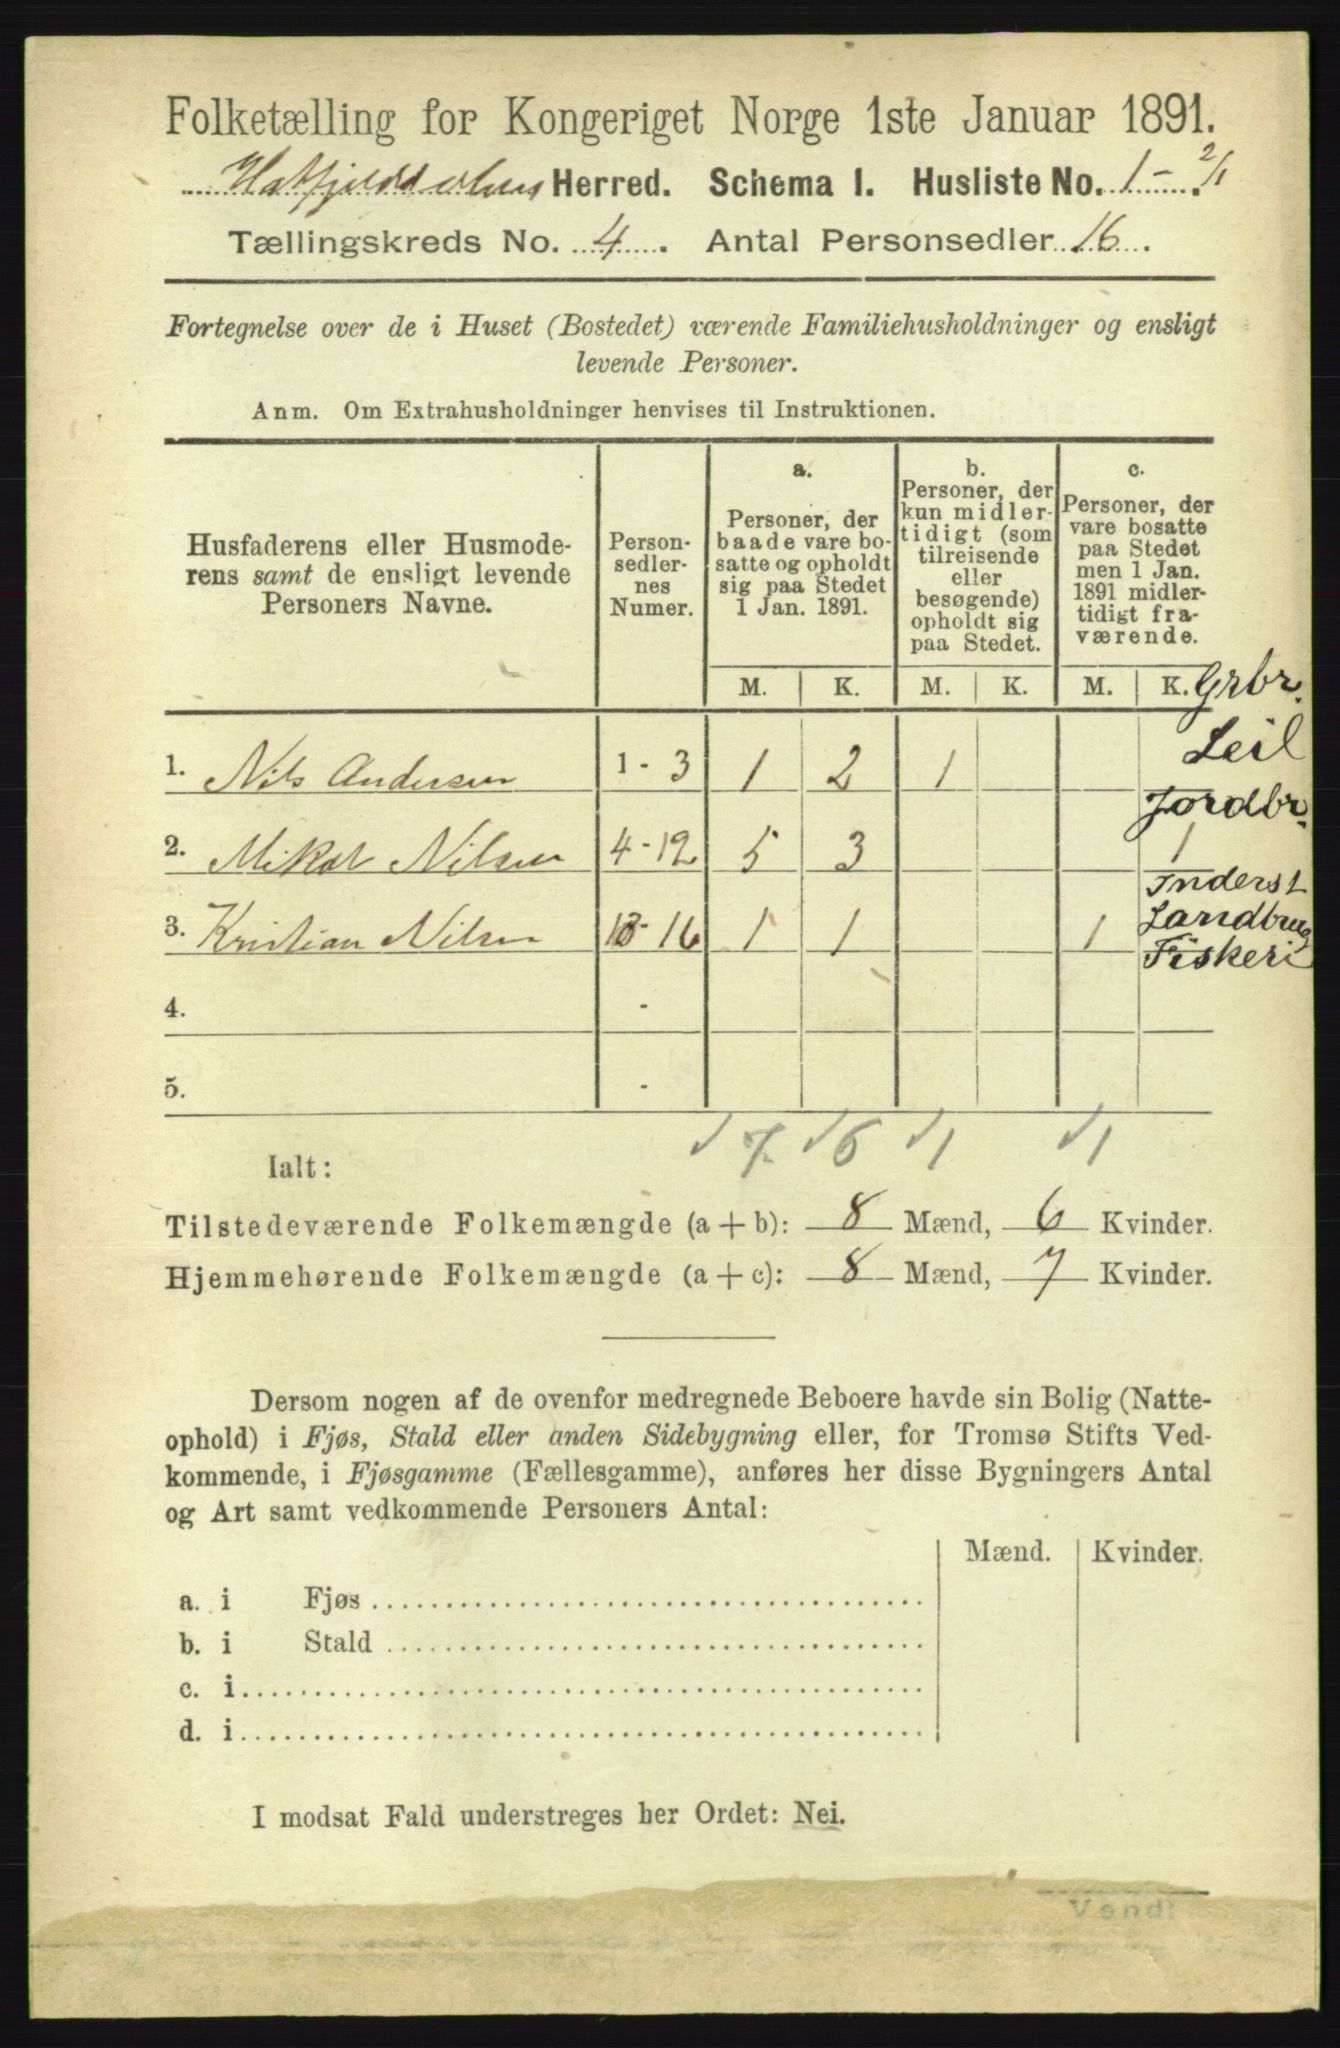 Folketælling for Kongeriget Norge 1ste Januar 1891.
Hatfjelddalens Herred. Schema I. Husliste No. 1 - 2/1.
Tællingskreds No. 4. Antal Personsedler 16.
Fortegnelse over de i Huset (Bostedet) værende Familiehusholdninger og ensligt
levende Personer.
Anm. Om Extrahusholdninger henvises til Instruktionen.
Husfaderens eller Husmode-
rens samt de ensligt levende
Personers Navne.
Person-
sedler-
nes
Numer.
a.
Personer, der
baade vare bo-
satte og opholdt
sig paa Stedet
1 Jan. 1891.
b.
Personer, der
kun midler-
tidigt (som
tilreisende
eller
besøgende)
opholdt sig
paa Stedet.
c.
Personer, der
vare bosatte
paa Stedet
men 1 Jan.
1891 midler-
tidigt fra-
værende.
M. K. M. K. M. K. Grbr.
Leil
1. Nils Andersen 1 - 3 1 2 1
Jordbr.
2. Mikal Nilsen 4 - 12 5 3 1
Inderst
Landbrug
3. Kristian Nilsen 13 - 16 1 1 1
Fiskeri
4. -
5. -
7 6 1 1
Ialt:
Tilstedeværende Folkemængde (a + b): 8 Mænd, 6 Kvinder.
Hjemmehørende Folkemængde (a + c): 8 Mænd, 7 Kvinder.
Dersom nogen af de ovenfor medregnede Beboere havde sin Bolig (Natte-
ophold) i Fjøs, Stald eller anden Sidebygning eller, for Tromsø Stifts Ved-
kommende, i Fjøsgamme (Fællesgamme), anføres her disse Bygningers Antal
og Art samt vedkommende Personers Antal:
Mænd. Kvinder.
a. i Fjøs
b. i Stald
c. i
d. i
I modsat Fald understreges her Ordet: Nei.
Vend!